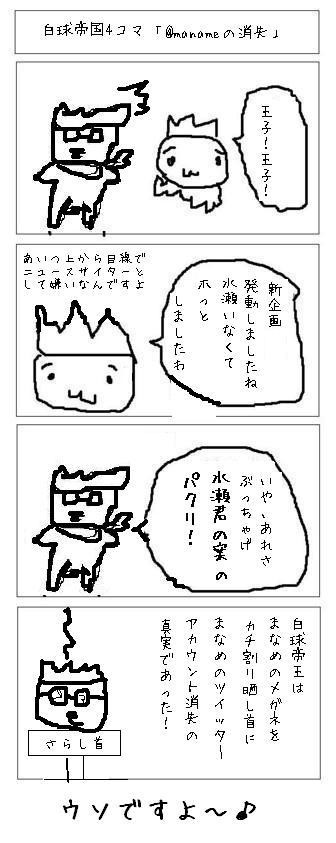 白球帝国4コマ「@manameの消失」
王子!王子!
新企画
発動しましたね
水瀬いなくて
ホっと
しましたわ
あいつ上から目線で
ニュースサイターと
して嫌いなんですよ
いや、あれさ
ぶっちゃけ
水瀬君の案の
パクリ!
白球帝王は
まなめのメガネを
カチ割り晒し首に
まなめのツイッター
アカウント消失の
真実であった!
さらし首
ウソですよ~♪